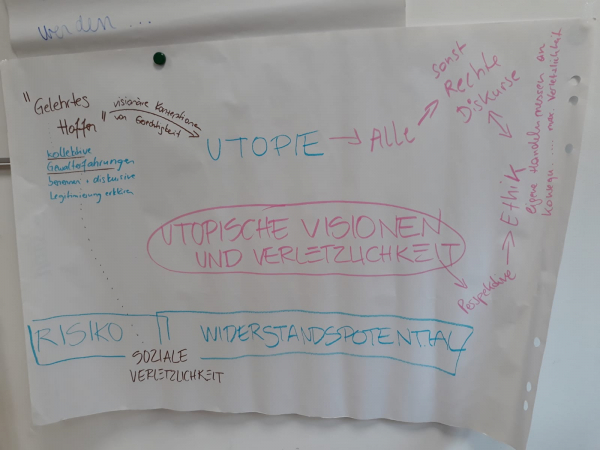 werden ...
"Gelehrtes
Hoffen"
visionäre Konzeptionen
von Gerechtigkeit
kollektive
Gewalterfahrungen
benennen + diskursive
Legitimierung erklären
UTOPIE
Alle
sonst
Rechte
Diskurse
Ethik
eigene Handeln messen an
Konsequ. .... Verletzlichkeit
Perspektive
UTOPISCHE VISIONEN
UND VERLETZLICHKEIT
RISIKO: WIDERSTANDSPOTENTIAL
SOZIALE
VERLETZLICHKEIT